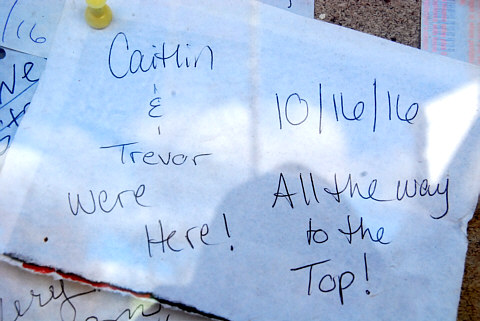 Caitlin
&
Trevor
Were
Here!
10/16/16
All the way
to the
Top!
/16